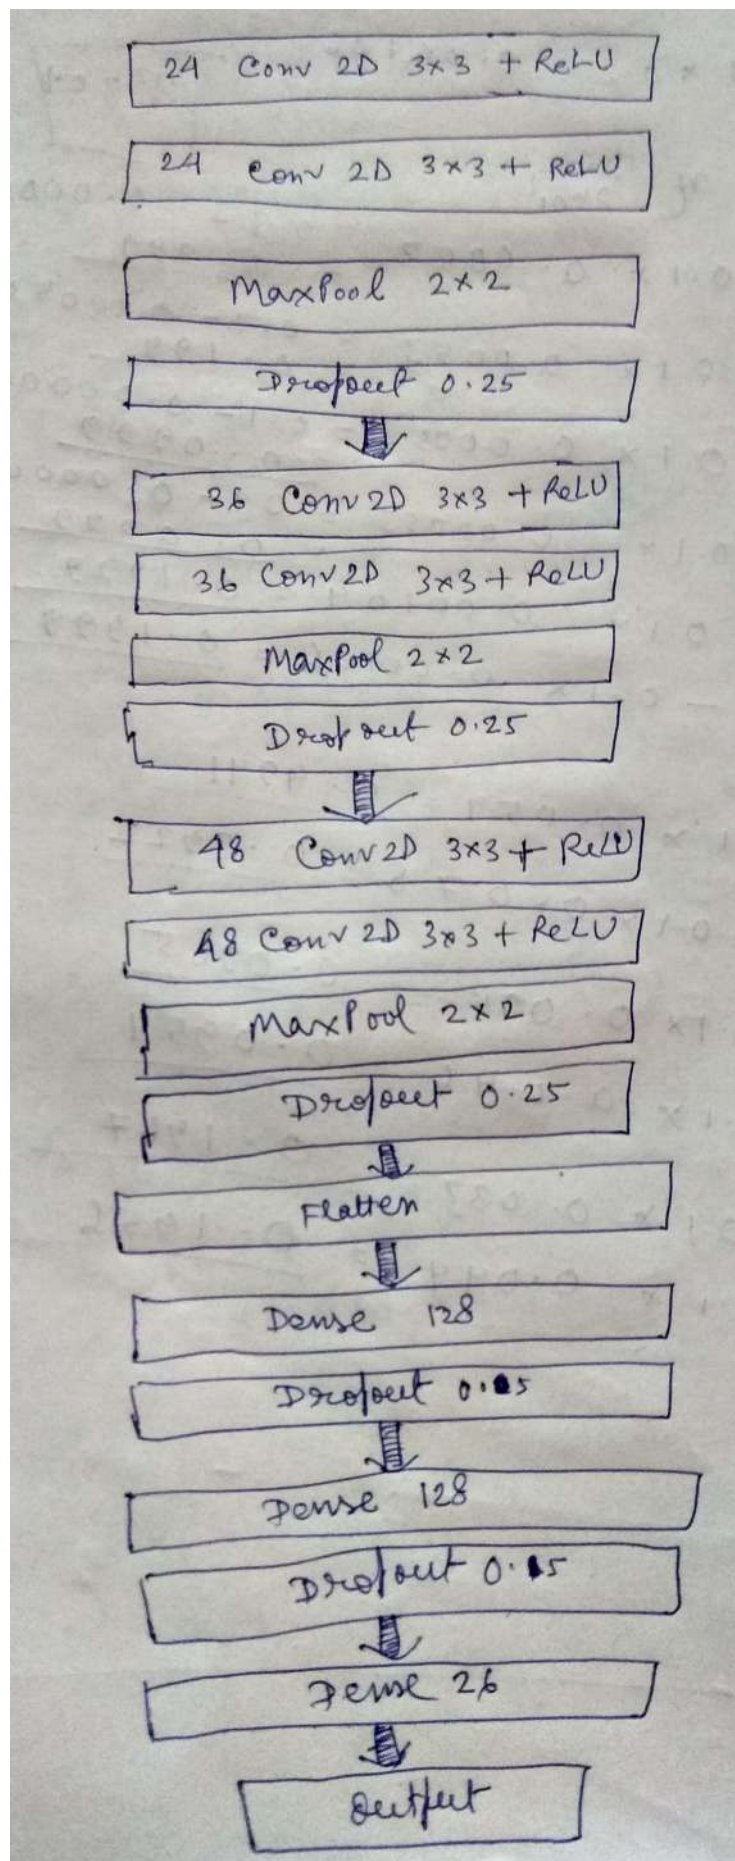 24 Conv 2D 3x3 + ReLU
24 Conv 2D 3x3 + ReLU
MaxPool 2x2
Dropout 0.25
36 Conv2D 3x3 + ReLU
36 Conv2D 3x3 + ReLU
MaxPool 2x2
Dropout 0.25
48 Conv2D 3x3 + ReLU
48 Conv2D 3x3 + ReLU
MaxPool 2x2
Dropout 0.25
Flatten
Dense 128
Dropout
Dense 128
Dropout
Dense 26
Output